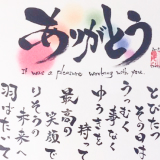 ありがとう
It was a pleasure working with you.
とびたて
その
うつむく
事なく
ゆうきを
持って
最高の
笑顔で
りそうの
未来へ
羽ばたいて